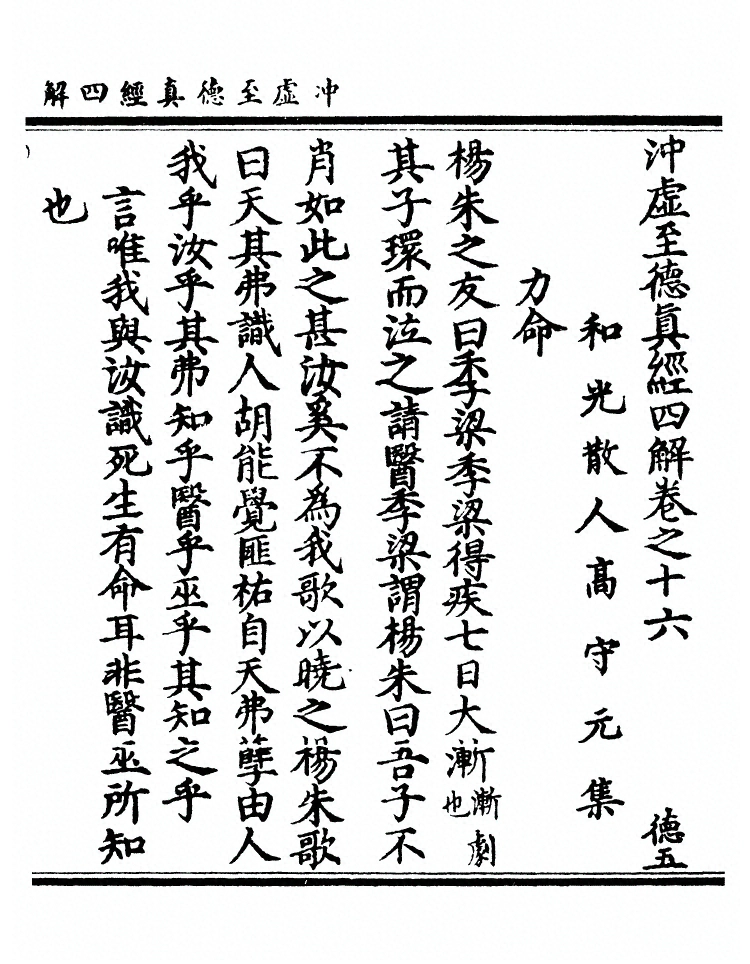 沖虛至德真經四解
沖虛至德眞經四解卷之十六 德五
和光散人高守元集
力命
楊朱之友曰季梁季梁得疾七日大漸漸劇也
其子環而泣之請醫季梁謂楊朱曰吾子不
肖如此之甚汝奚不為我歌以曉之楊朱歌
曰天其弗識人胡能覺匪祐自天弗孽由人
我乎汝乎其弗知乎醫乎巫乎其知之乎
言唯我與汝識死生有命耳非醫巫所知
也